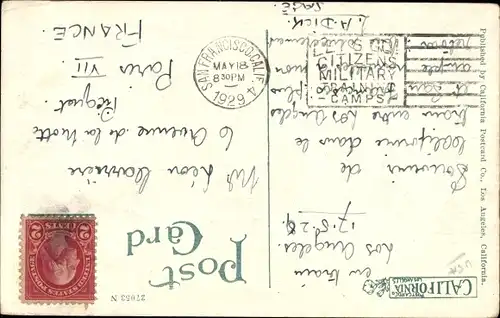 Published by California Postcard Co., Los Angeles, California.
SAN FRANCISCO, CALIF. 4
MAY 18
8 30 PM
1929
CITIZENS
MILITARY
TRAINING
CAMPS
Post
Card
27053 N
CALIFORNIA
POSTCARD Co.
LOS ANGELES
UNITED STATES POSTAGE
2 CENTS 2
en train
Los Angeles
17.5.29
Souvenir de
Californie dans le
train entre Los Angeles
Mr Léon Carrière
6 Avenue de la Motte
Picquet
Paris VII
FRANCE